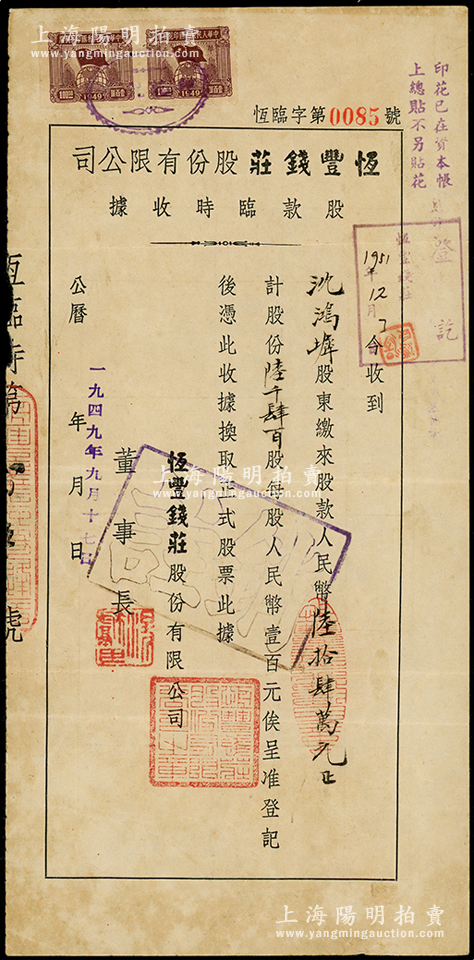 上海陽明拍賣
www.yangmingauction.com
1949
1949
恆臨字第0085號
印花已在資本帳
上總貼不另貼花
恆豐錢莊股份有限公司
股款臨時收據
登記
恆豐錢莊
1951年12月7
今收到
沈鴻墀股東繳來股款人民幣陸拾肆萬元正
計股份陸千肆百股每股人民幣壹百元俟呈准登記
後憑此收據換取正式股票此據
恆豐錢莊股份有限公司
董事長
公曆 年 月 日
一九四九年九月十七日
恆臨字第 號
上海陽明拍賣
www.yangmingauction.com
上海陽明拍賣
www.yangmingauction.com